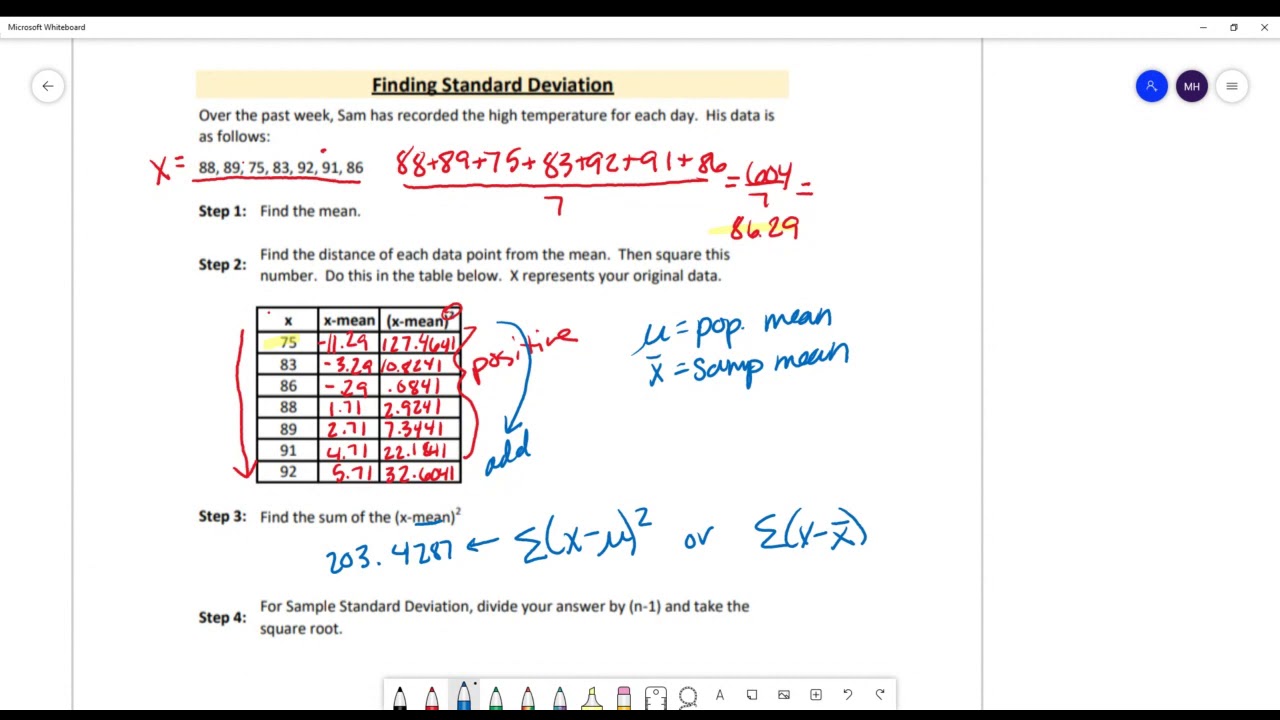 Microsoft Whiteboard
MH
Finding Standard Deviation
Over the past week, Sam has recorded the high temperature for each day. His data is
as follows:
X = 88, 89, 75, 83, 92, 91, 86
88+89+75+83+92+91+86 = 604 =
7 7
86.29
Step 1: Find the mean.
Step 2: Find the distance of each data point from the mean. Then square this
number. Do this in the table below. X represents your original data.
x x-mean (x-mean)²
75 -11.29 127.4641
83 -3.29 10.8241
86 -.29 .0841
88 1.71 2.9241
89 2.71 7.3441
91 4.71 22.1841
92 5.71 32.6041
positive
add
μ = pop. mean
x̄ = samp mean
Step 3: Find the sum of the (x-mean)²
203.4287 ← Σ(x-μ)² or Σ(x-x̄)
Step 4: For Sample Standard Deviation, divide your answer by (n-1) and take the
square root.
A